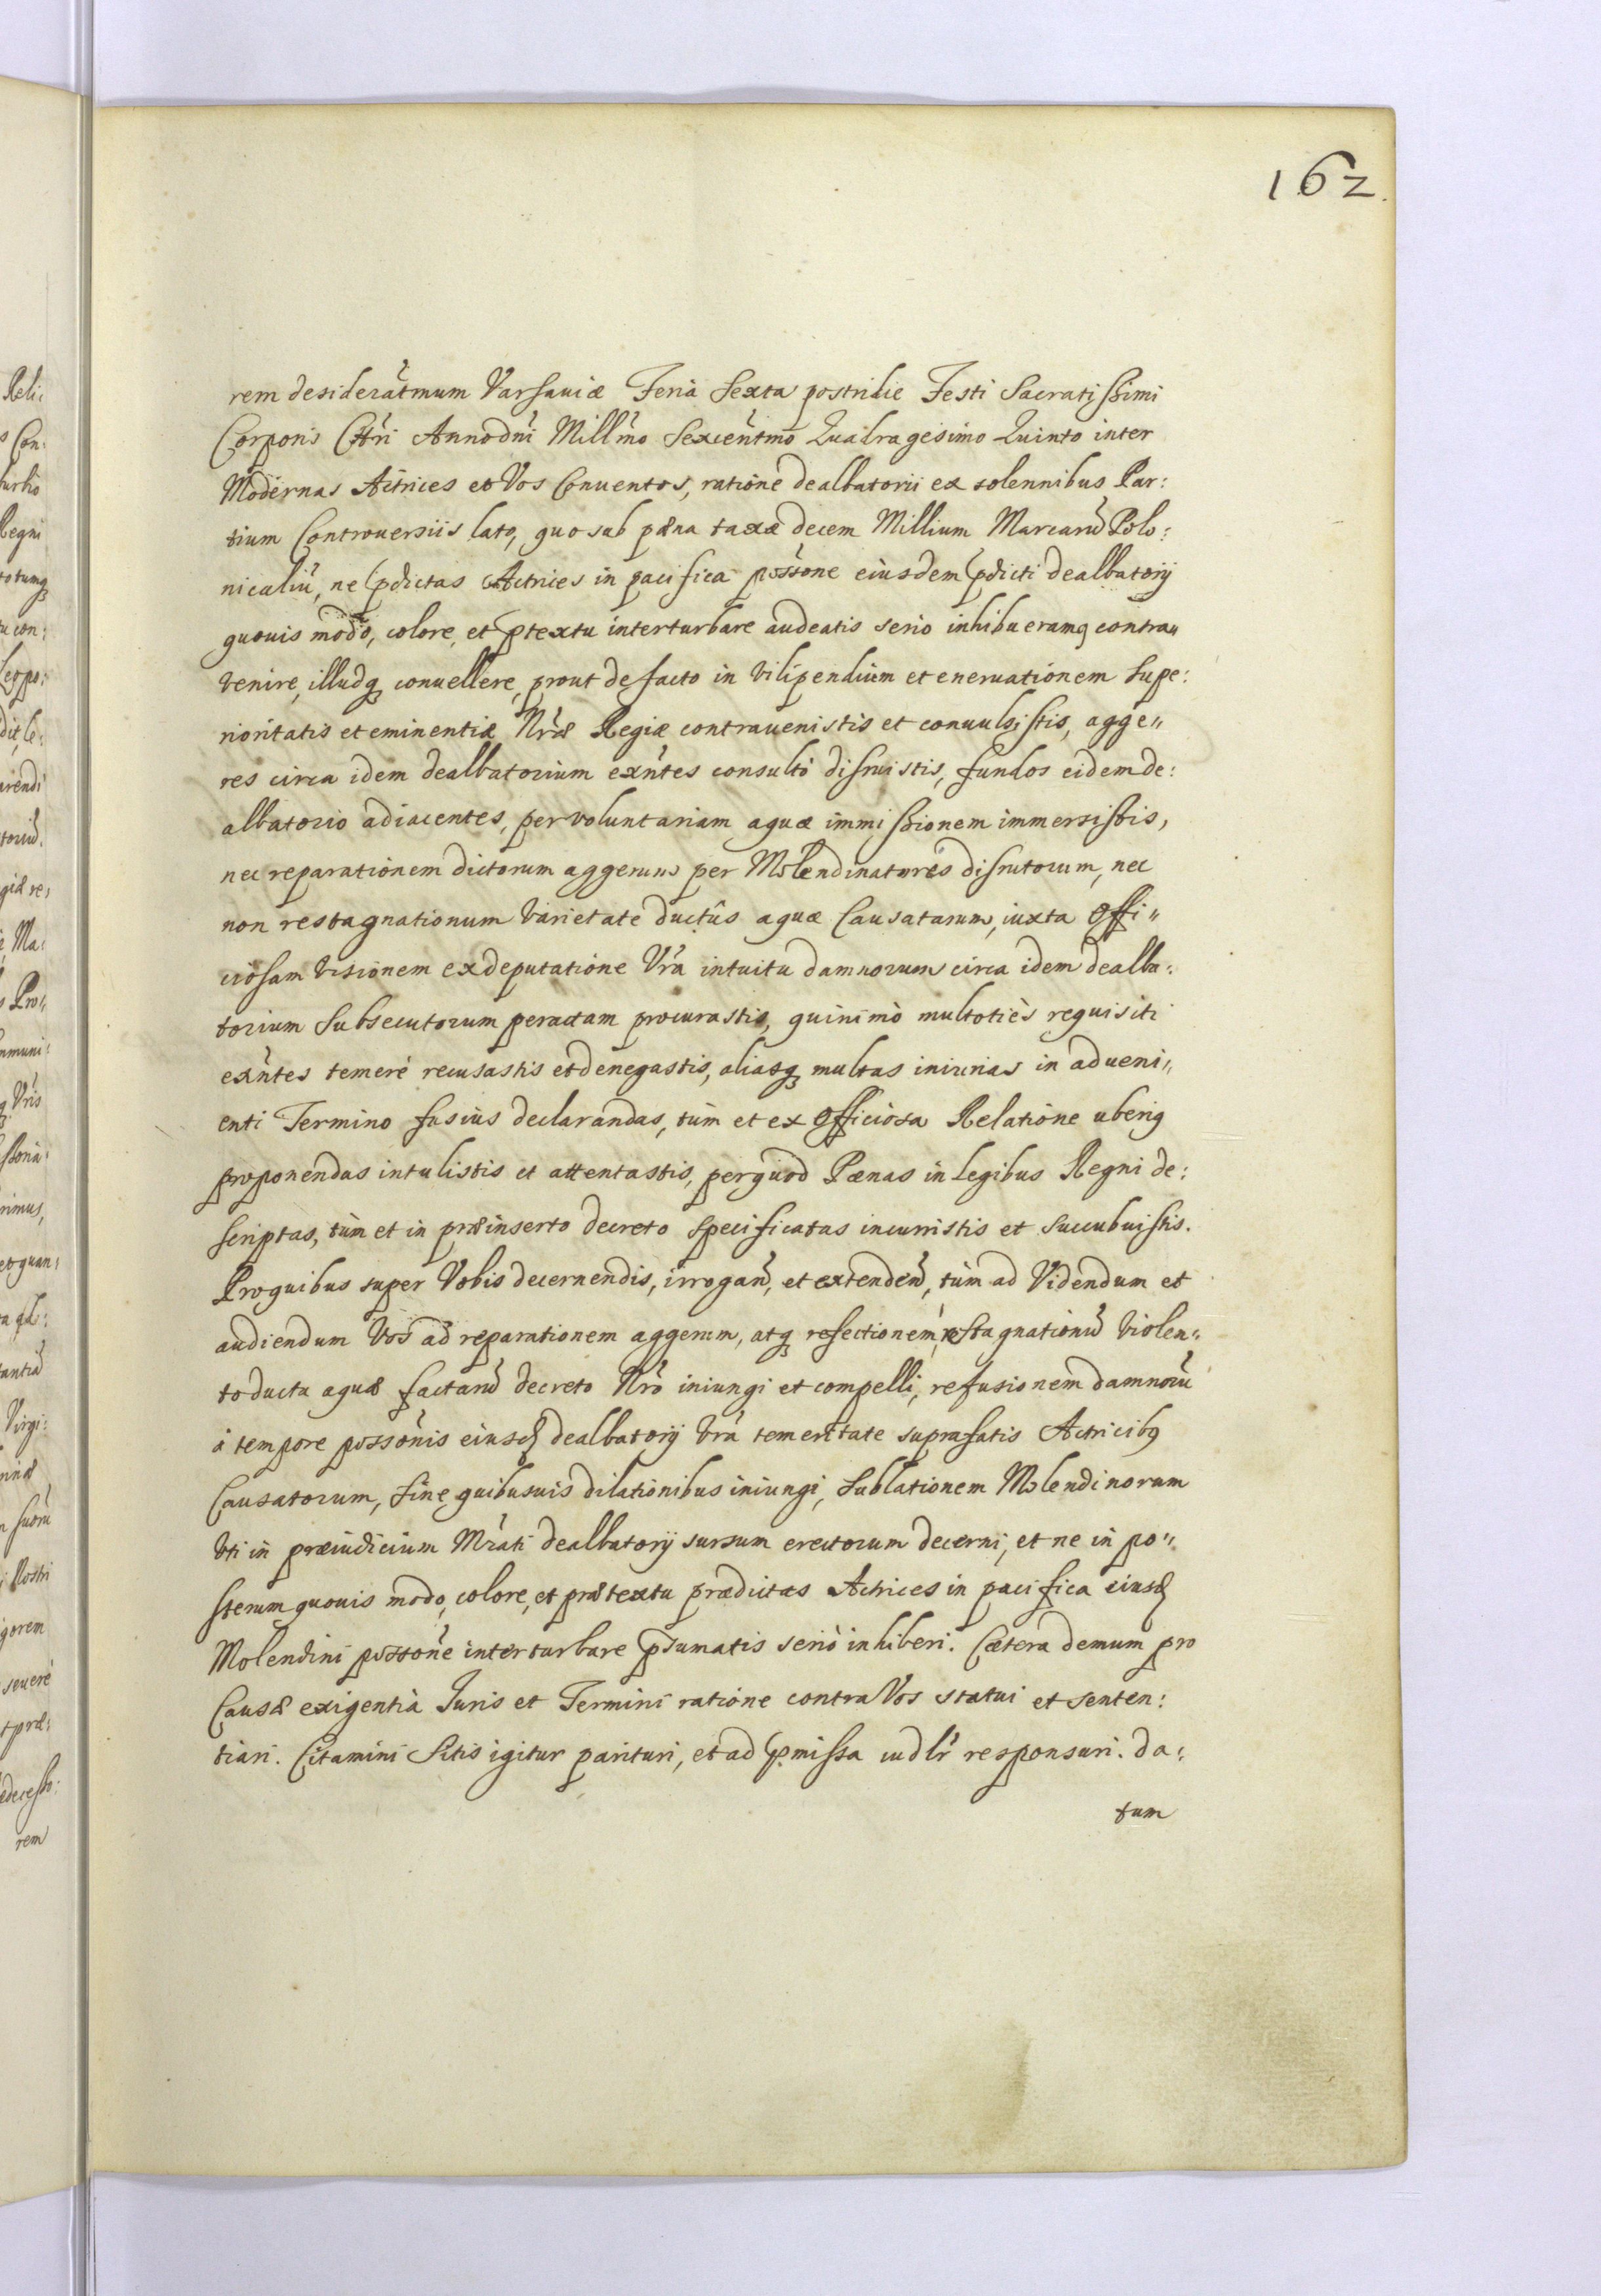 162.
rem desiderãtmum Varsauiæ Feria Sexta postridie Festi Sacratissimi
Corporis Chr̃i Anno dñi Millm̃o Sexcentm̃o Quadragesimo Quinto inter
Modernas Actrices et Vos Conuentos, ratione dealbatorii ex solennibus Par:
tium Controuersiis lato, quo sub pæna taxæ decem Millium Marcarũ Polo:
nicaliũ, ne pdictas Actrices in pacifica possõne eiusdem pdicti dealbatorij
quouis modo, colore, et ptextu interturbare audeatis serio inhibueramq contra„
venire, illudq conuellere, prout de facto in vilipendium et eneruationem Supe:
rioritatis et eminentiæ Nr̃æ Regiæ contrauenistis et conuulsistis, agge„
res circa idem dealbatorium exñtes consultò disruistis, fundos eidem de:
albatorio adiacentes, per voluntariam aquæ immissionem immersistis,
nec reparationem dictorum aggerum per Molendinatores disrutorum, nec
non restagnationum varietate ductûs aquæ Causatarum, iuxta Offi„
ciosam visionem ex deputatione Vr̃a intuitu damnorum circa idem dealba:
torium Subsecutorum peractam procurastis, quinimò multotiès requisiti
exñtes temerè recusastis et denegastis, aliasq multas iniurias in adueni„
enti Termino fusius declarandas, tùm et ex Officiosa Relatione uberiq
proponendas intulistis et attentastis, perquod Pœnas in legibus Regni de:
scriptas, tùm et in præinserto decreto specificatas incurristis et succubuistis.
Pro quibus super Vobis decernendis, irrogañ, et extendeñ, tùm ad Videndum et
audiendum Vos ad reparationem aggerum, atq refectionem, restagnationũ violen„
to ductu aquæ factarũ decreto Nr̃o iniungi et compelli, refusionem damnorũ
à tempore possõnis eiusd dealbatorij Vr̃a temeritate suprafatis Actricibq
Causatorum, sine quibusuis dilationibus iniungi, Sublationem Molendinorum
vti in præiudicium Mr̃ati dealbatorij sursum erectorum decerni, et ne in po„
sterum quouis modo, colore, et prætextu prædictas Actrices in pacifica eiusd
Molendini possõne interturbare psumatis seriò inhiberi. Cætera demum pro
Causæ exigentià Juris et Termini ratione contra Vos statui et senten:
tiari. Citamini Sitis igitur parituri, et ad pmissa iudlr̃ responsuri. Da:
tum